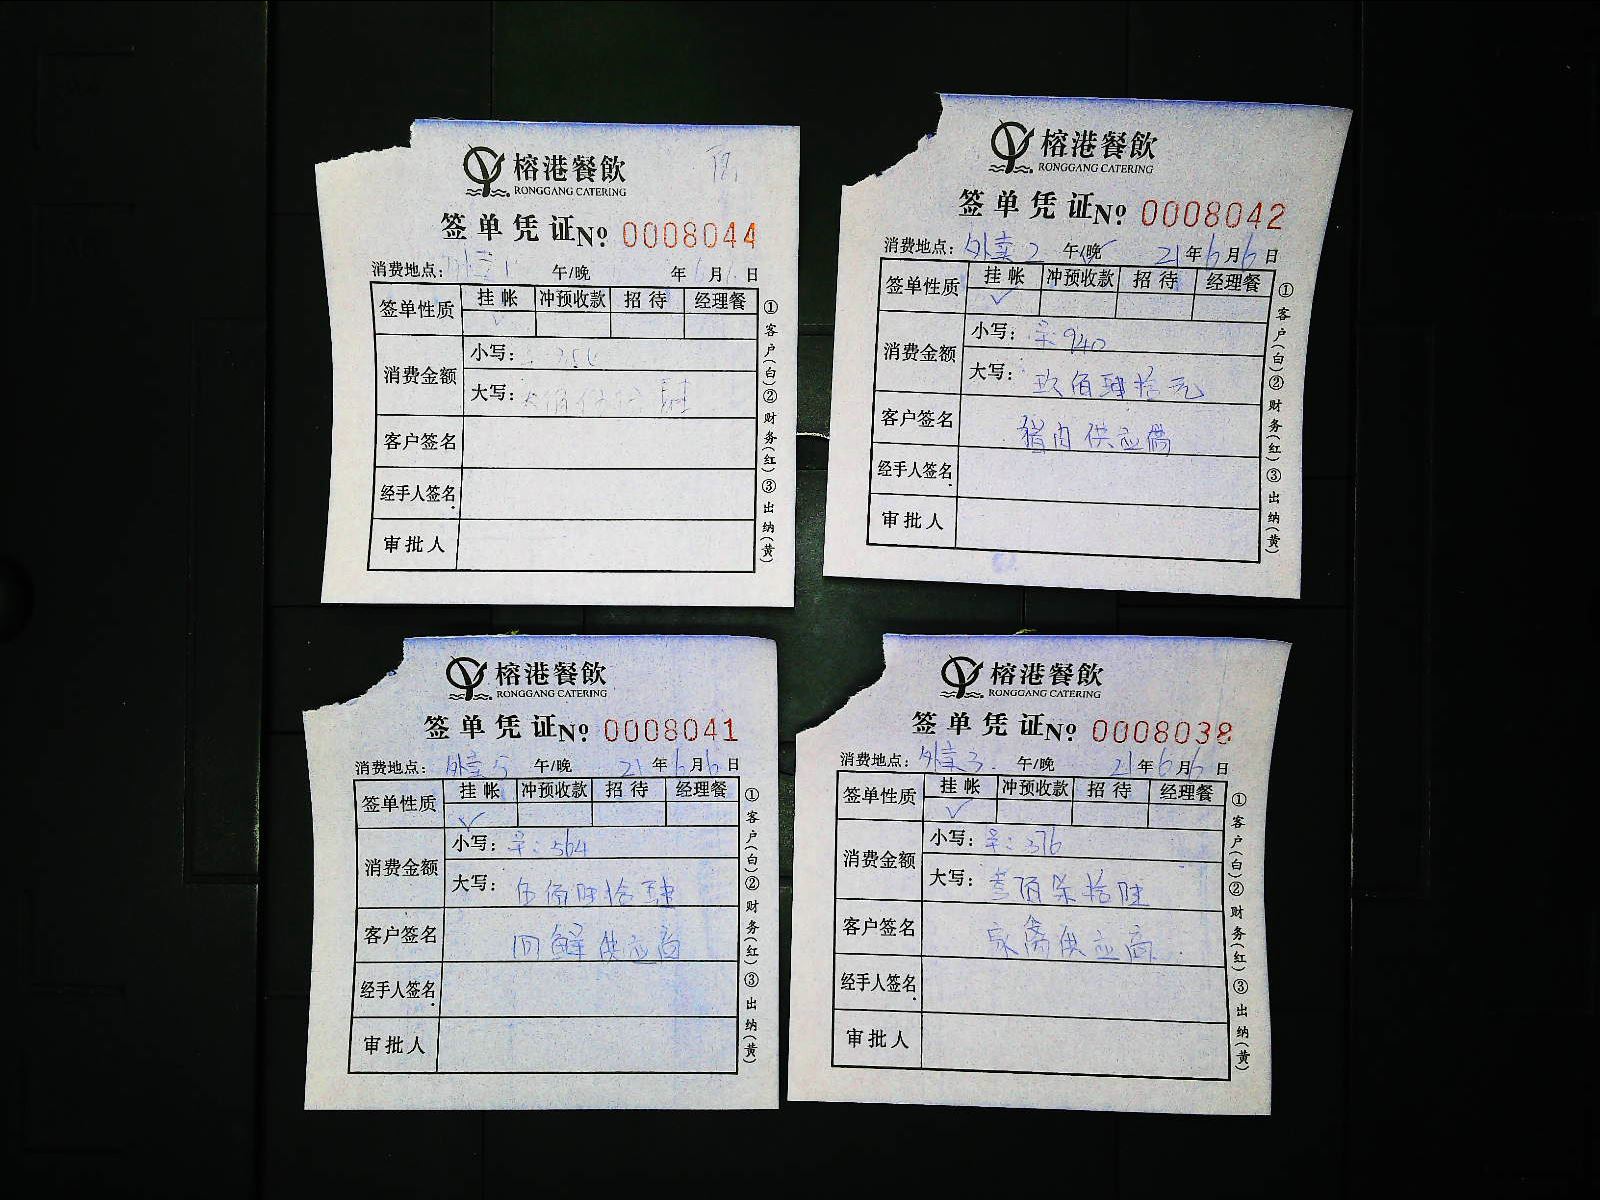 榕港餐飲
RONGGANG CATERING
签单凭证 № 0008044
消费地点：外卖1 午/晚 年6月 日
签单性质 挂帐 冲预收款 招待 经理餐
✓
消费金额 小写：
大写：
客户签名
经手人签名
审批人
①客户(白)②财务(红)③出纳(黄)
榕港餐飲
RONGGANG CATERING
签单凭证 № 0008042
消费地点：外卖2 午/晚✓ 21年6月6日
签单性质 挂帐 冲预收款 招待 经理餐
✓
消费金额 小写： 940
大写：玖佰肆拾元
客户签名 猪肉供应商
经手人签名
审批人
①客户(白)②财务(红)③出纳(黄)
榕港餐飲
RONGGANG CATERING
签单凭证 № 0008041
消费地点：外卖5 午/晚 21年6月6日
签单性质 挂帐 冲预收款 招待 经理餐
✓
消费金额 小写： 564
大写：伍佰陆拾肆
客户签名 供应商
经手人签名
审批人
①客户(白)②财务(红)③出纳(黄)
榕港餐飲
RONGGANG CATERING
签单凭证 № 0008038
消费地点：外卖3. 午/晚 21年6月6日
签单性质 挂帐 冲预收款 招待 经理餐
✓
消费金额 小写： 376
大写：叁佰柒拾陆
客户签名 家禽供应商
经手人签名
审批人
①客户(白)②财务(红)③出纳(黄)